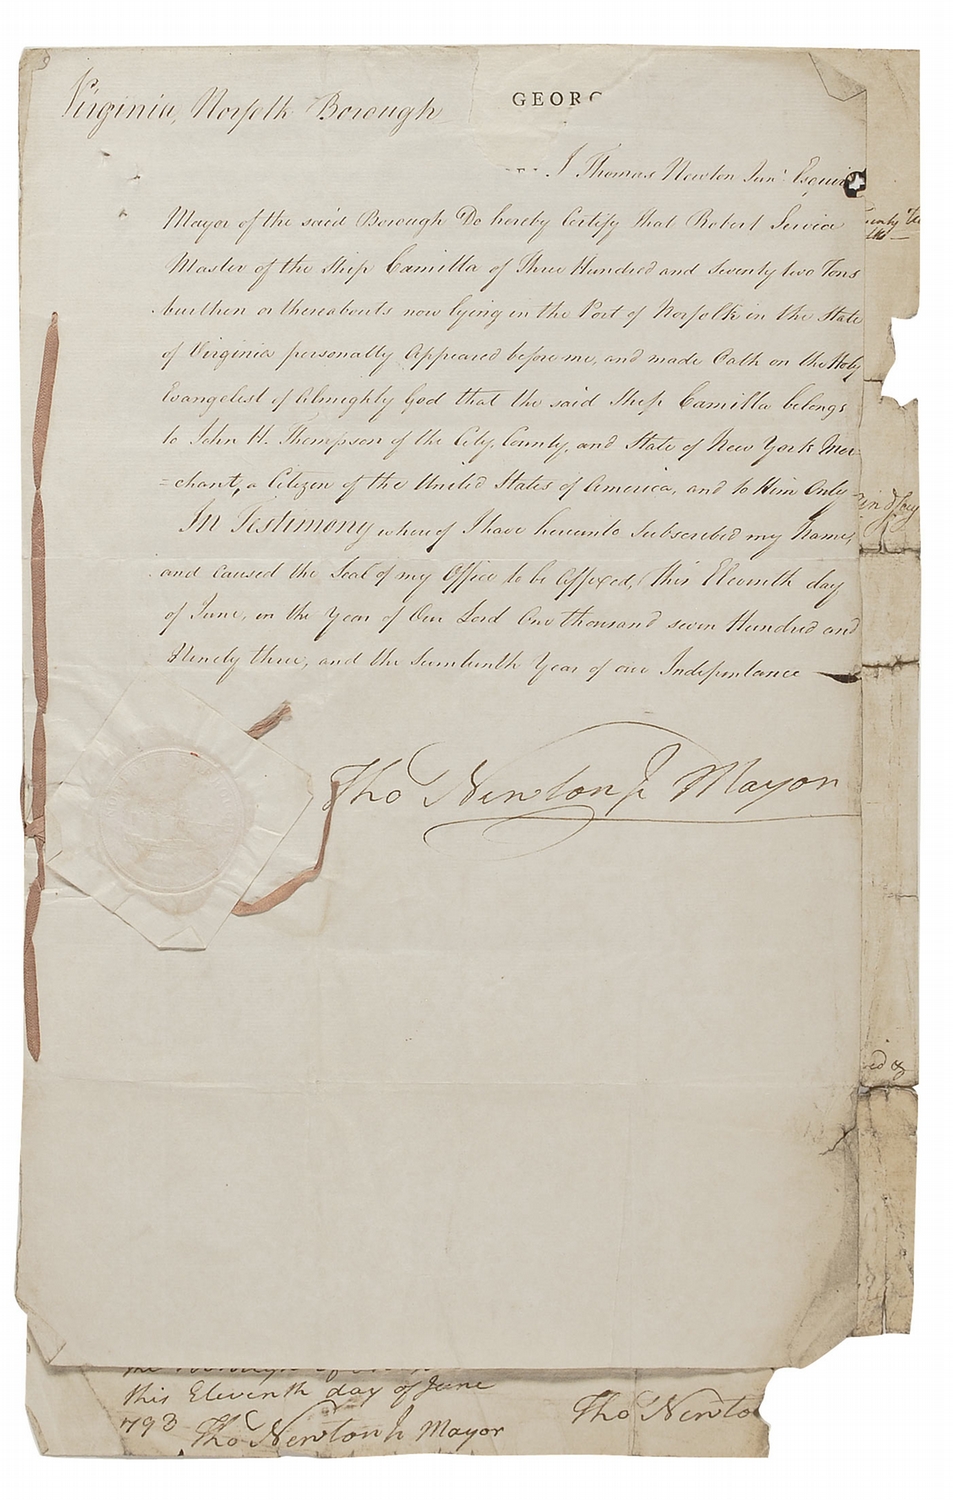 Virginia, Norfolk Borough
GEORG
I Thomas Newton Junr Esquire
Mayor of the said Borough Do hereby Certify that Robert Service
Master of the Ship Camilla of Three Hundred and Seventy two Tons
burthen or thereabouts now lying in the Port of Norfolk in the State
of Virginia personally Appeared before me, and made Oath on the Holy
Evangelist of Almighty God that the said Ship Camilla belongs
to John H. Thompson of the City, County, and State of New York Mer-
=chant, a Citizen of the United States of America, and to Him Only
In Testimony whereof I have hereunto Subscribed my Name,
and caused the Seal of my Office to be Affixed, this Eleventh day
of June, in the Year of Our Lord One thousand seven Hundred and
Ninety three, and the Seventeenth Year of our Independance
Tho Newton Jr Mayor
this Eleventh day of June
793 Tho Newton Jr Mayor
Tho Newto